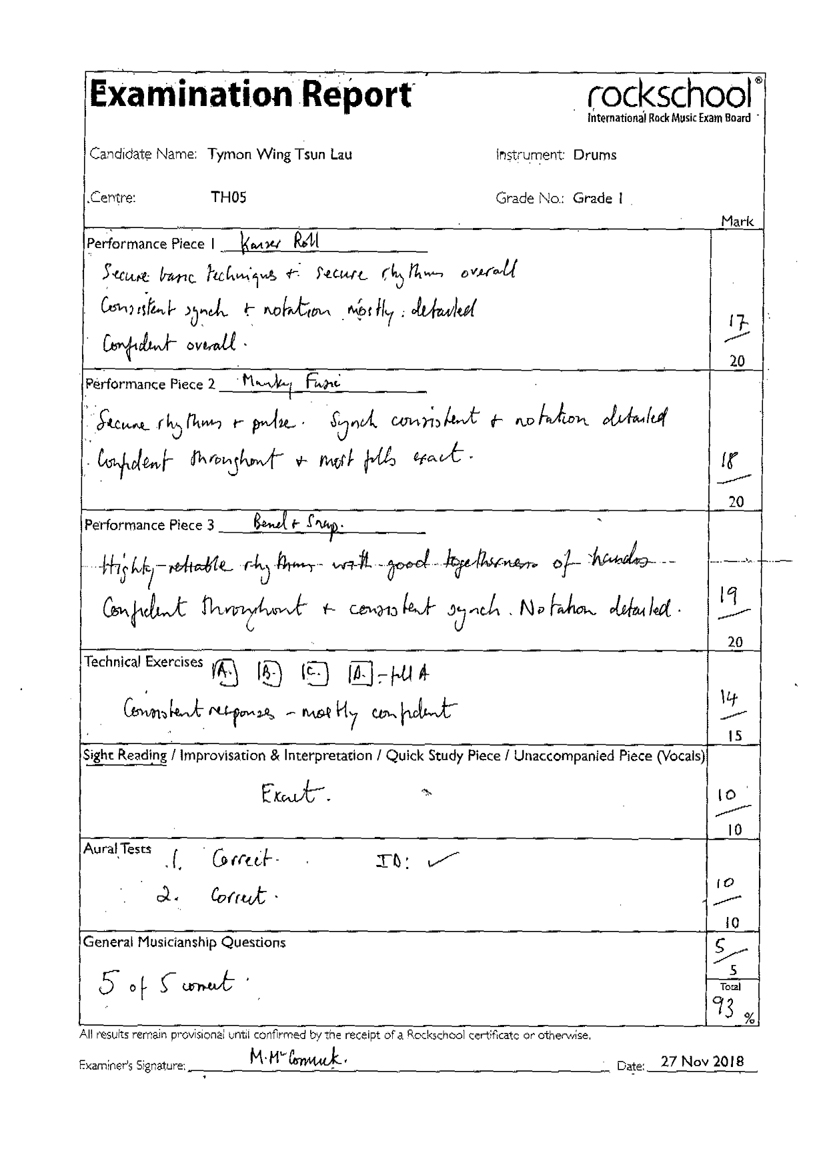 Examination Report
rockschool®
International Rock Music Exam Board
Candidate Name: Tymon Wing Tsun Lau
Instrument: Drums
Centre: TH05
Grade No.: Grade 1
Mark
Performance Piece 1 Kaiser Roll
Secure basic techniques + secure rhythms overall
Consistent synch + notation mostly detailed
Confident overall.
17
20
Performance Piece 2 Manky
Secure rhythms + pulse. Synch consistent + notation detailed
Confident throughout + most fills exact.
18
20
Performance Piece 3
Highly reliable rhythms with good togetherness of hands
Confident throughout + consistent synch. Notation detailed.
19
20
Technical Exercises A. B. C. D. - fill A
Consistent responses - mostly confident
14
15
Sight Reading / Improvisation & Interpretation / Quick Study Piece / Unaccompanied Piece (Vocals)
Exact.
10
10
Aural Tests 1. Correct. ID: ✓
2. Correct.
10
10
General Musicianship Questions
5 of 5 correct.
5
5
Total
93 %
All results remain provisional until confirmed by the receipt of a Rockschool certificate or otherwise.
Examiner's Signature: M. McCormick.
Date: 27 Nov 2018